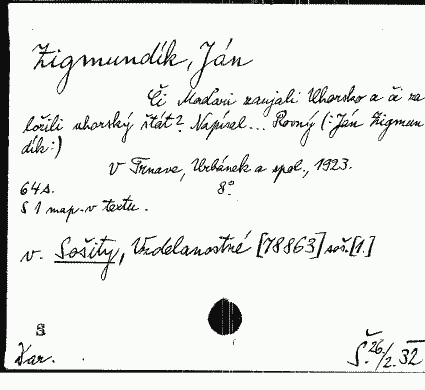 Zigmundík, Ján
Či Maďari zaujali Uhorsko a či za
ložili uhorský štát? Napísal... Rovný (:Ján Zigmun
dík:)
V Trnave, Urbánek a spol., 1923.
64 s. 8°.
S 1 map. v textu.
v. Sošity, Vzdelanostné [78863] soš.[1.]
S
Dar. Š. 26/2. 32